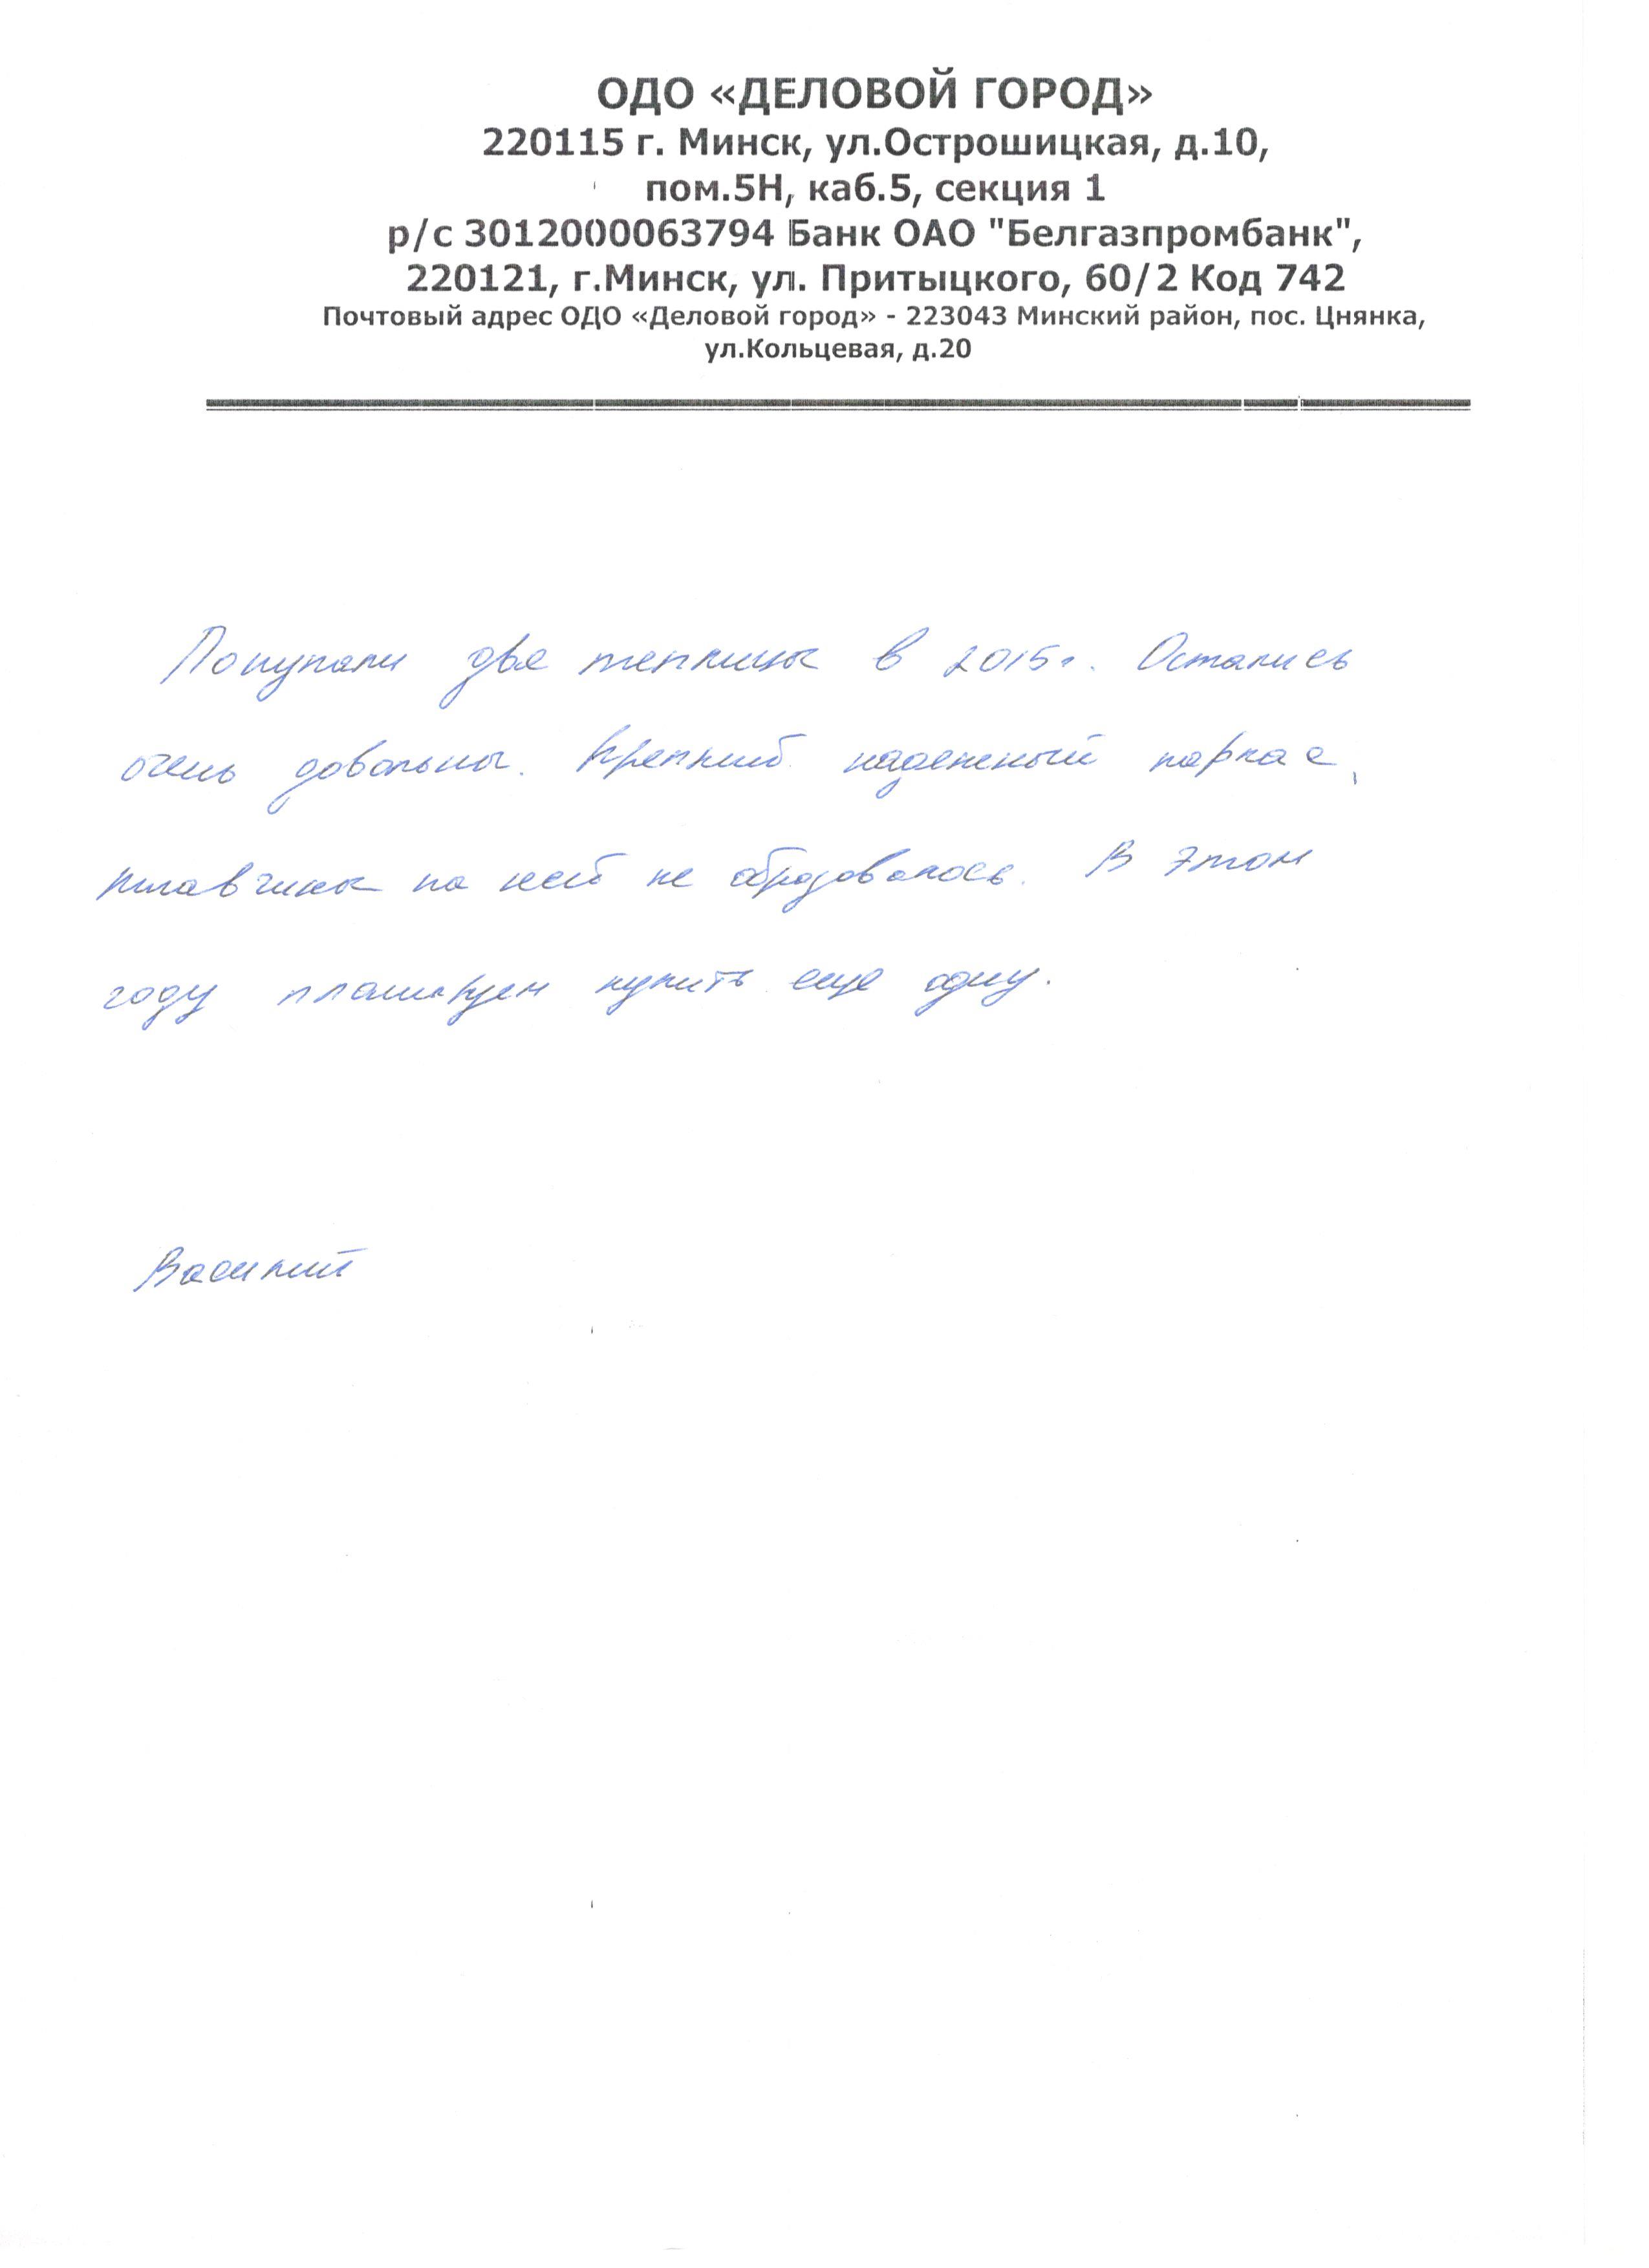 ОДО «ДЕЛОВОЙ ГОРОД»
220115 г. Минск, ул.Острошицкая, д.10,
пом.5Н, каб.5, секция 1
р/с 3012000063794 Банк ОАО "Белгазпромбанк",
220121, г.Минск, ул. Притыцкого, 60/2 Код 742
Почтовый адрес ОДО «Деловой город» - 223043 Минский район, пос. Цнянка,
ул.Кольцевая, д.20
Покупали две теплицы в 2015г. Остались
очень довольны. Крепкий надежный каркас,
ржавчины на ней не образовалось. В этом
году планируем купить еще одну.
Василий